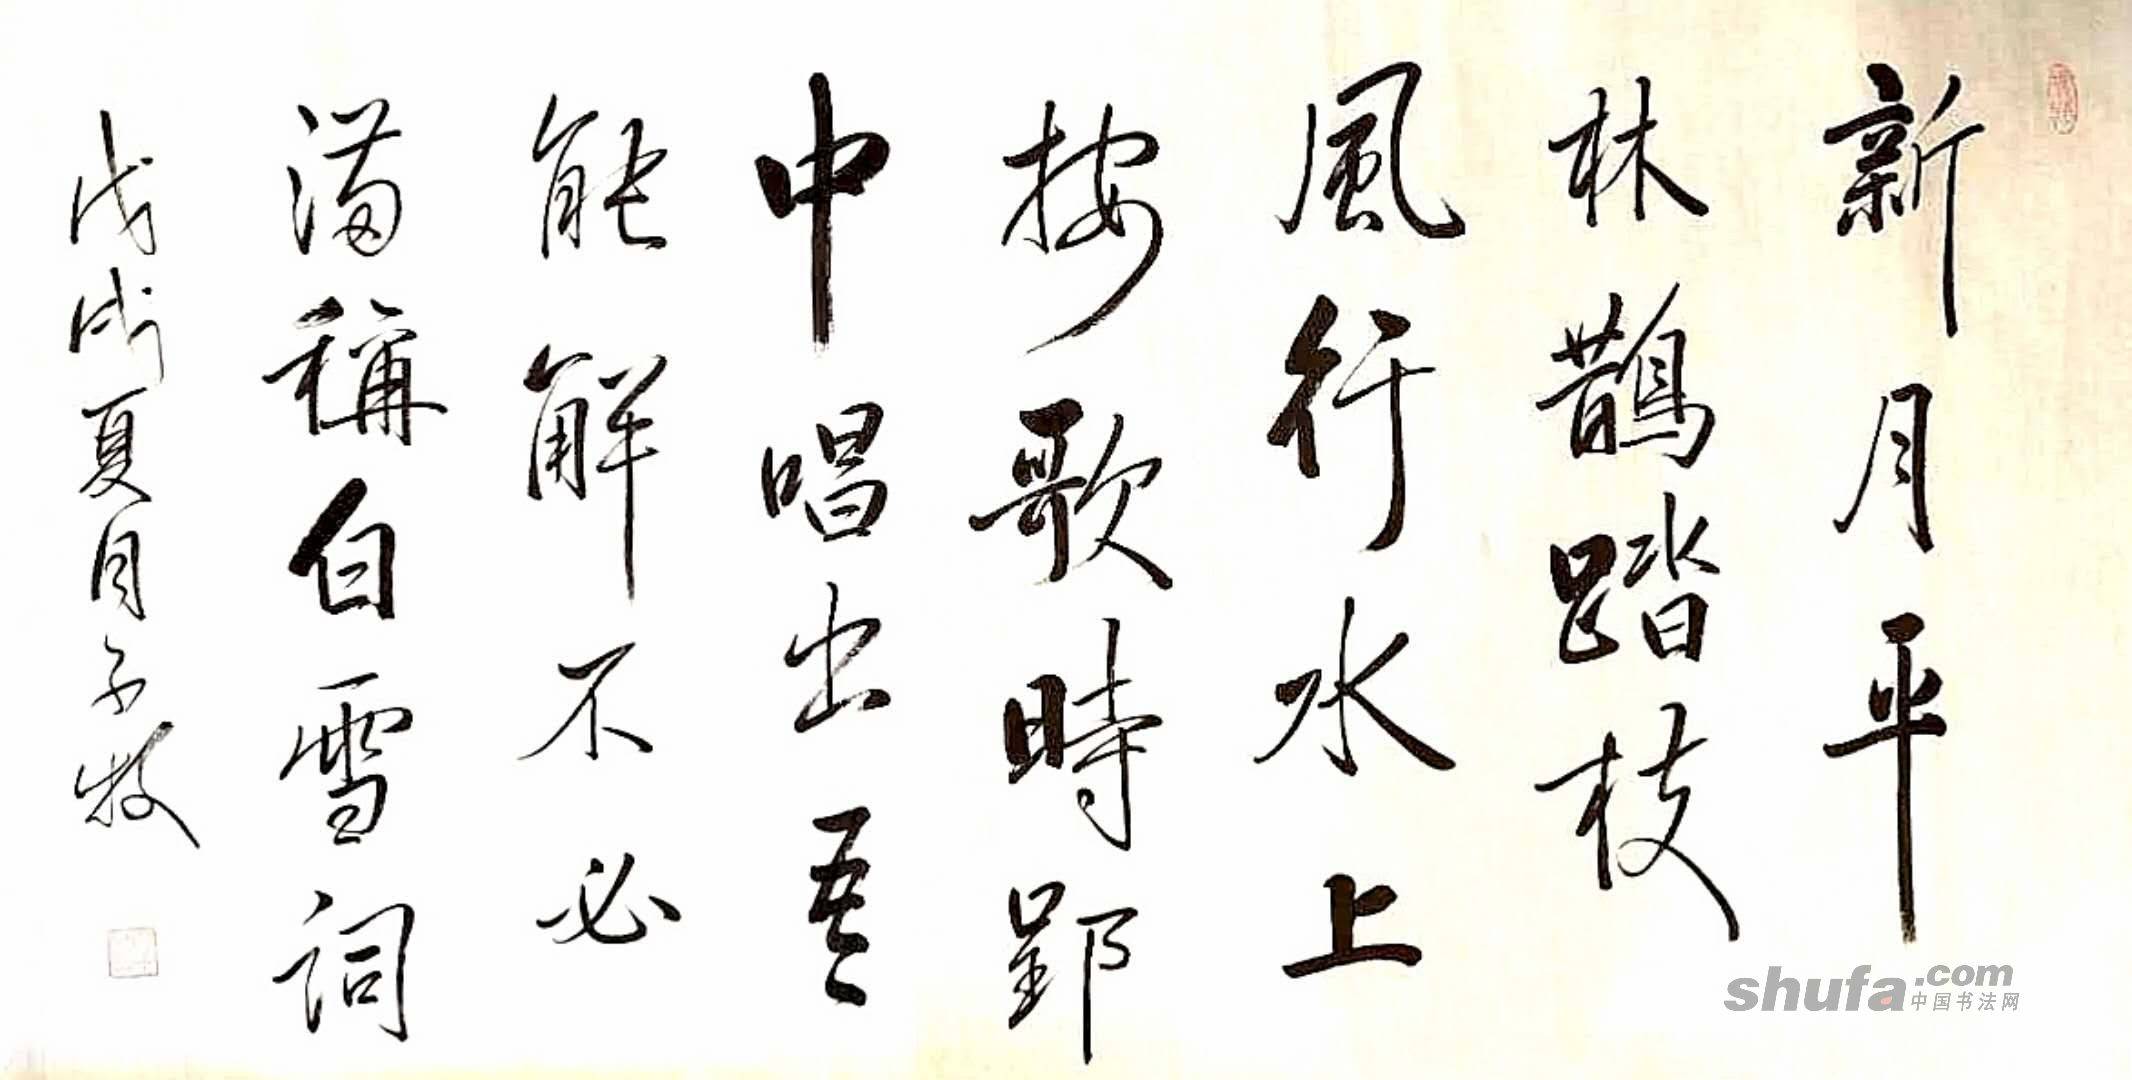 新月平
林鵲踏枝
風行水上
按歌時郢
中唱出吾
能解不必
滿稱白雪詞
戊戌夏月子牧
shufa.com
中国书法网